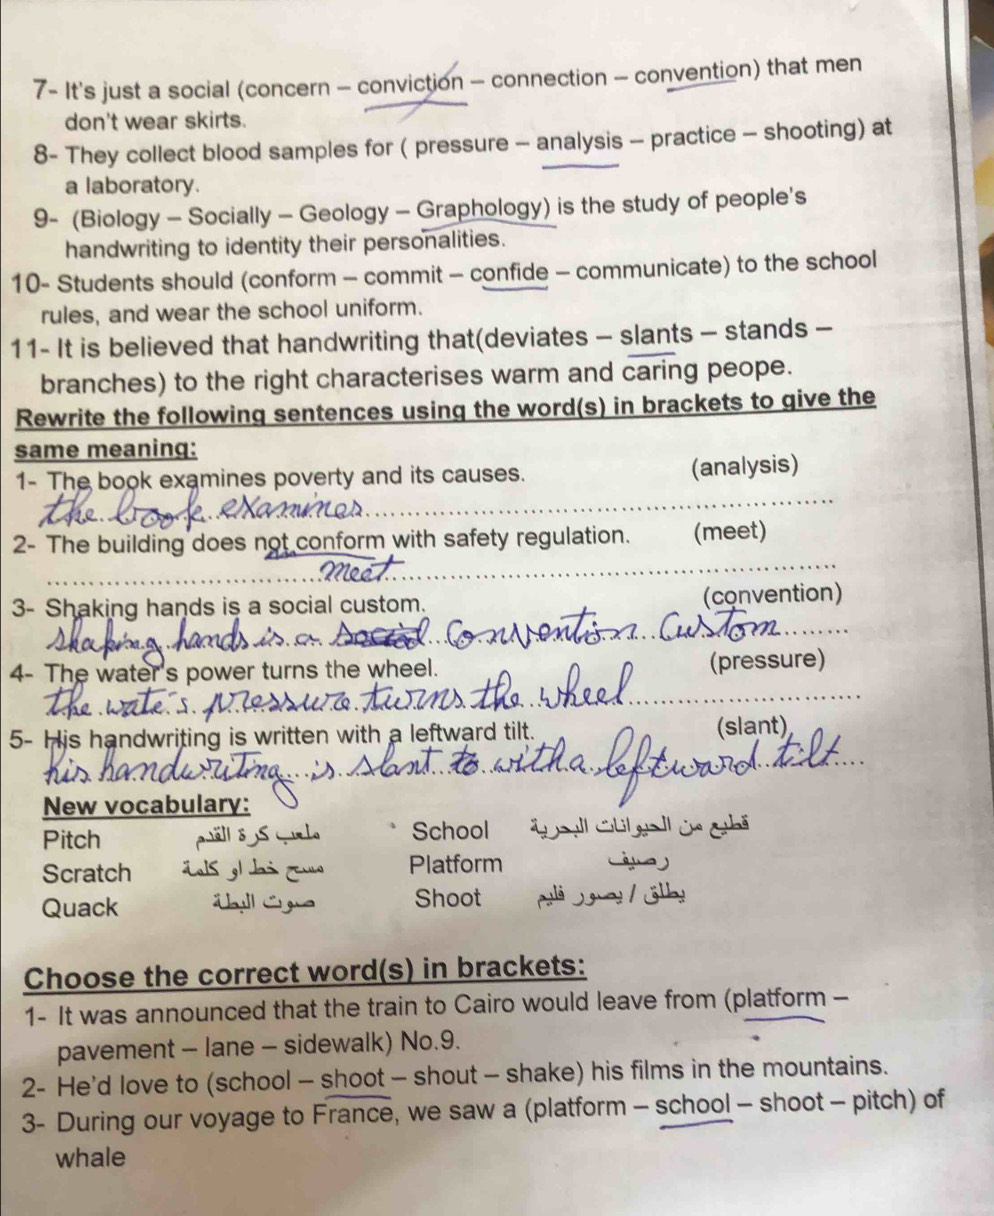 7- It's just a social (concern – conviction – connection – convention) that men
don't wear skirts.
8- They collect blood samples for ( pressure – analysis – practice – shooting) at
a laboratory.
9- (Biology – Socially – Geology – Graphology) is the study of people's
handwriting to identity their personalities.
10- Students should (conform – commit – confide – communicate) to the school
rules, and wear the school uniform.
11- It is believed that handwriting that(deviates – slants – stands –
branches) to the right characterises warm and caring peope.
Rewrite the following sentences using the word(s) in brackets to give the
same meaning:
1- The book examines poverty and its causes. (analysis)
the book examines
2- The building does not conform with safety regulation. (meet)
meet
3- Shaking hands is a social custom. (convention)
shaking hands is a social convention custom
4- The water's power turns the wheel. (pressure)
the wate's pressure turns the wheel
5- His handwriting is written with a leftward tilt. (slant)
his handwriting is slant to with a leftward tilt
New vocabulary:
Pitch ملعب كرة القدم School قطيع من الحيوانات البحرية
Scratch مسح خط او كلمة Platform رصيف
Quack صوت البطة Shoot يطلق / يصور فليم
Choose the correct word(s) in brackets:
1- It was announced that the train to Cairo would leave from (platform –
pavement – lane – sidewalk) No.9.
2- He'd love to (school – shoot – shout – shake) his films in the mountains.
3- During our voyage to France, we saw a (platform – school – shoot – pitch) of
whale